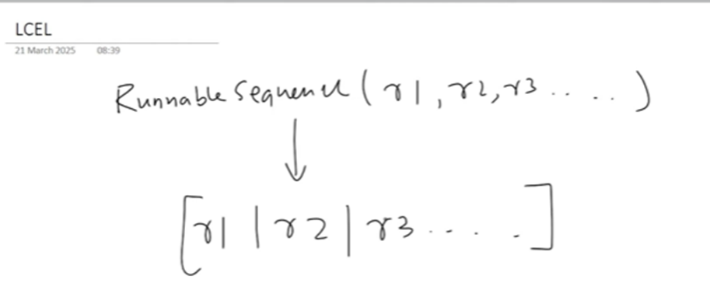 LCEL
21 March 2025 08:39
Runnable Sequence (r1, r2, r3 .. . .)
[r1 | r2 | r3 ... . .]